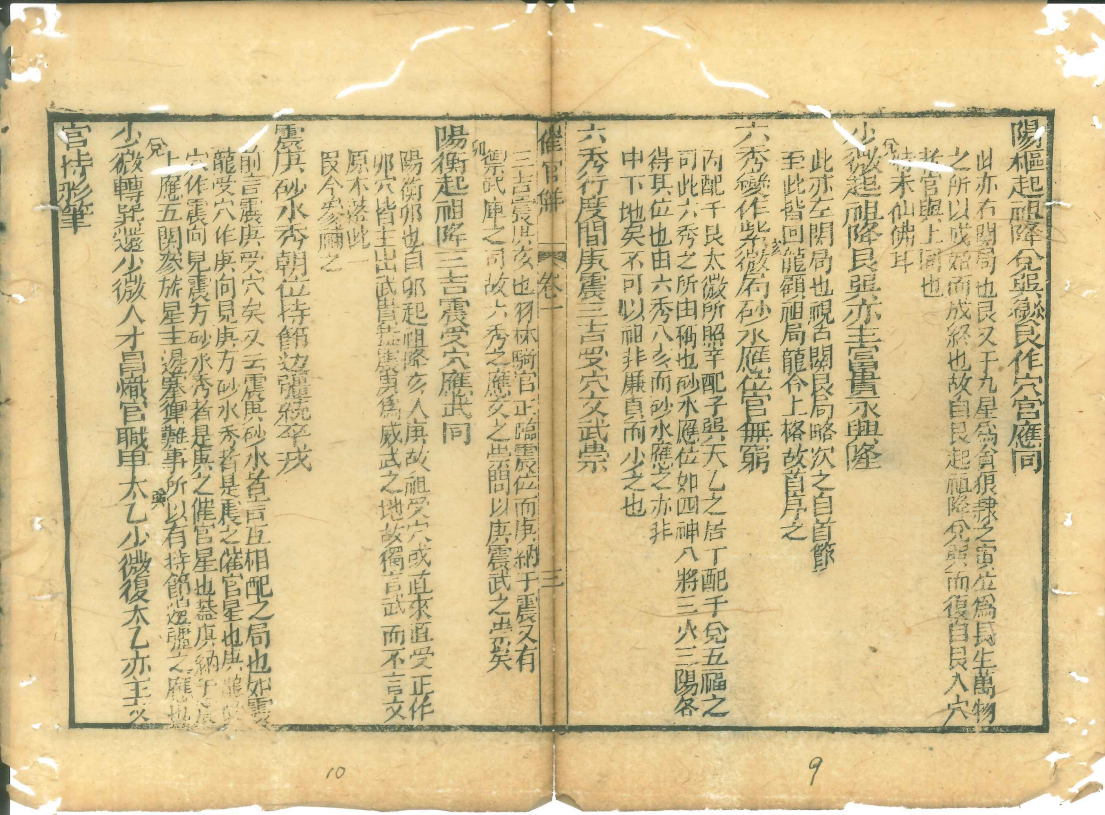 陽樞起祖降兌巽歘艮作穴官應同
此亦右關局也艮又于九星為貪狼隸之寅位為長生萬物
之所以成始而成終也故自艮起祖降兌巽而復自艮入穴
者官與上同也
法未仙佛耳
兌
少微起祖降艮巽亦主富貴永興隆
此亦左關局也視右關艮局略次之自首節
至此皆回龍顧祖局龍合上格故首序之
亥
六秀變作紫微局砂水應位官無窮
丙配于艮太微所照辛配于巽天乙之居丁配于兌五福之
司此六秀之所由稱也砂水應位如四神八將三火三陽各
得其位也由六秀入亥而砂水應之亦非
中下地矣不可以祖非廉貞而少之也
六秀行度間庚震三吉受穴文武崇
催官解 卷一 三
三吉震庚亥也羽林騎官正臨震位而庚納于震又有
禦武庫之司故六秀之應文之崇間以庚震武之崇矣
卯
陽衡起祖降三吉震受穴應武同
陽衡卯也自卯起祖降亥入庚故祖受穴或直來直受正作
卯穴皆主出武貴蓋震庚為威武之地故獨言武而不言文
原本落此一
段今參補之
震庚砂水秀朝位持節边疆統卒戎
前言震庚受穴矣又云震庚砂水者言互相配之局也如震
龍受穴作庚向見庚方砂水秀者是震之催官星也庚龍
穴作震向見震方砂水秀者是庚之催官星也蓋庚納于震
上應五関參旗星主邊塞禦難事所以有持節邊疆之應也
兌 巽
少微轉巽還少微人才昌熾官職卑太乙少微復太乙亦主文
官持彤筆
10
9